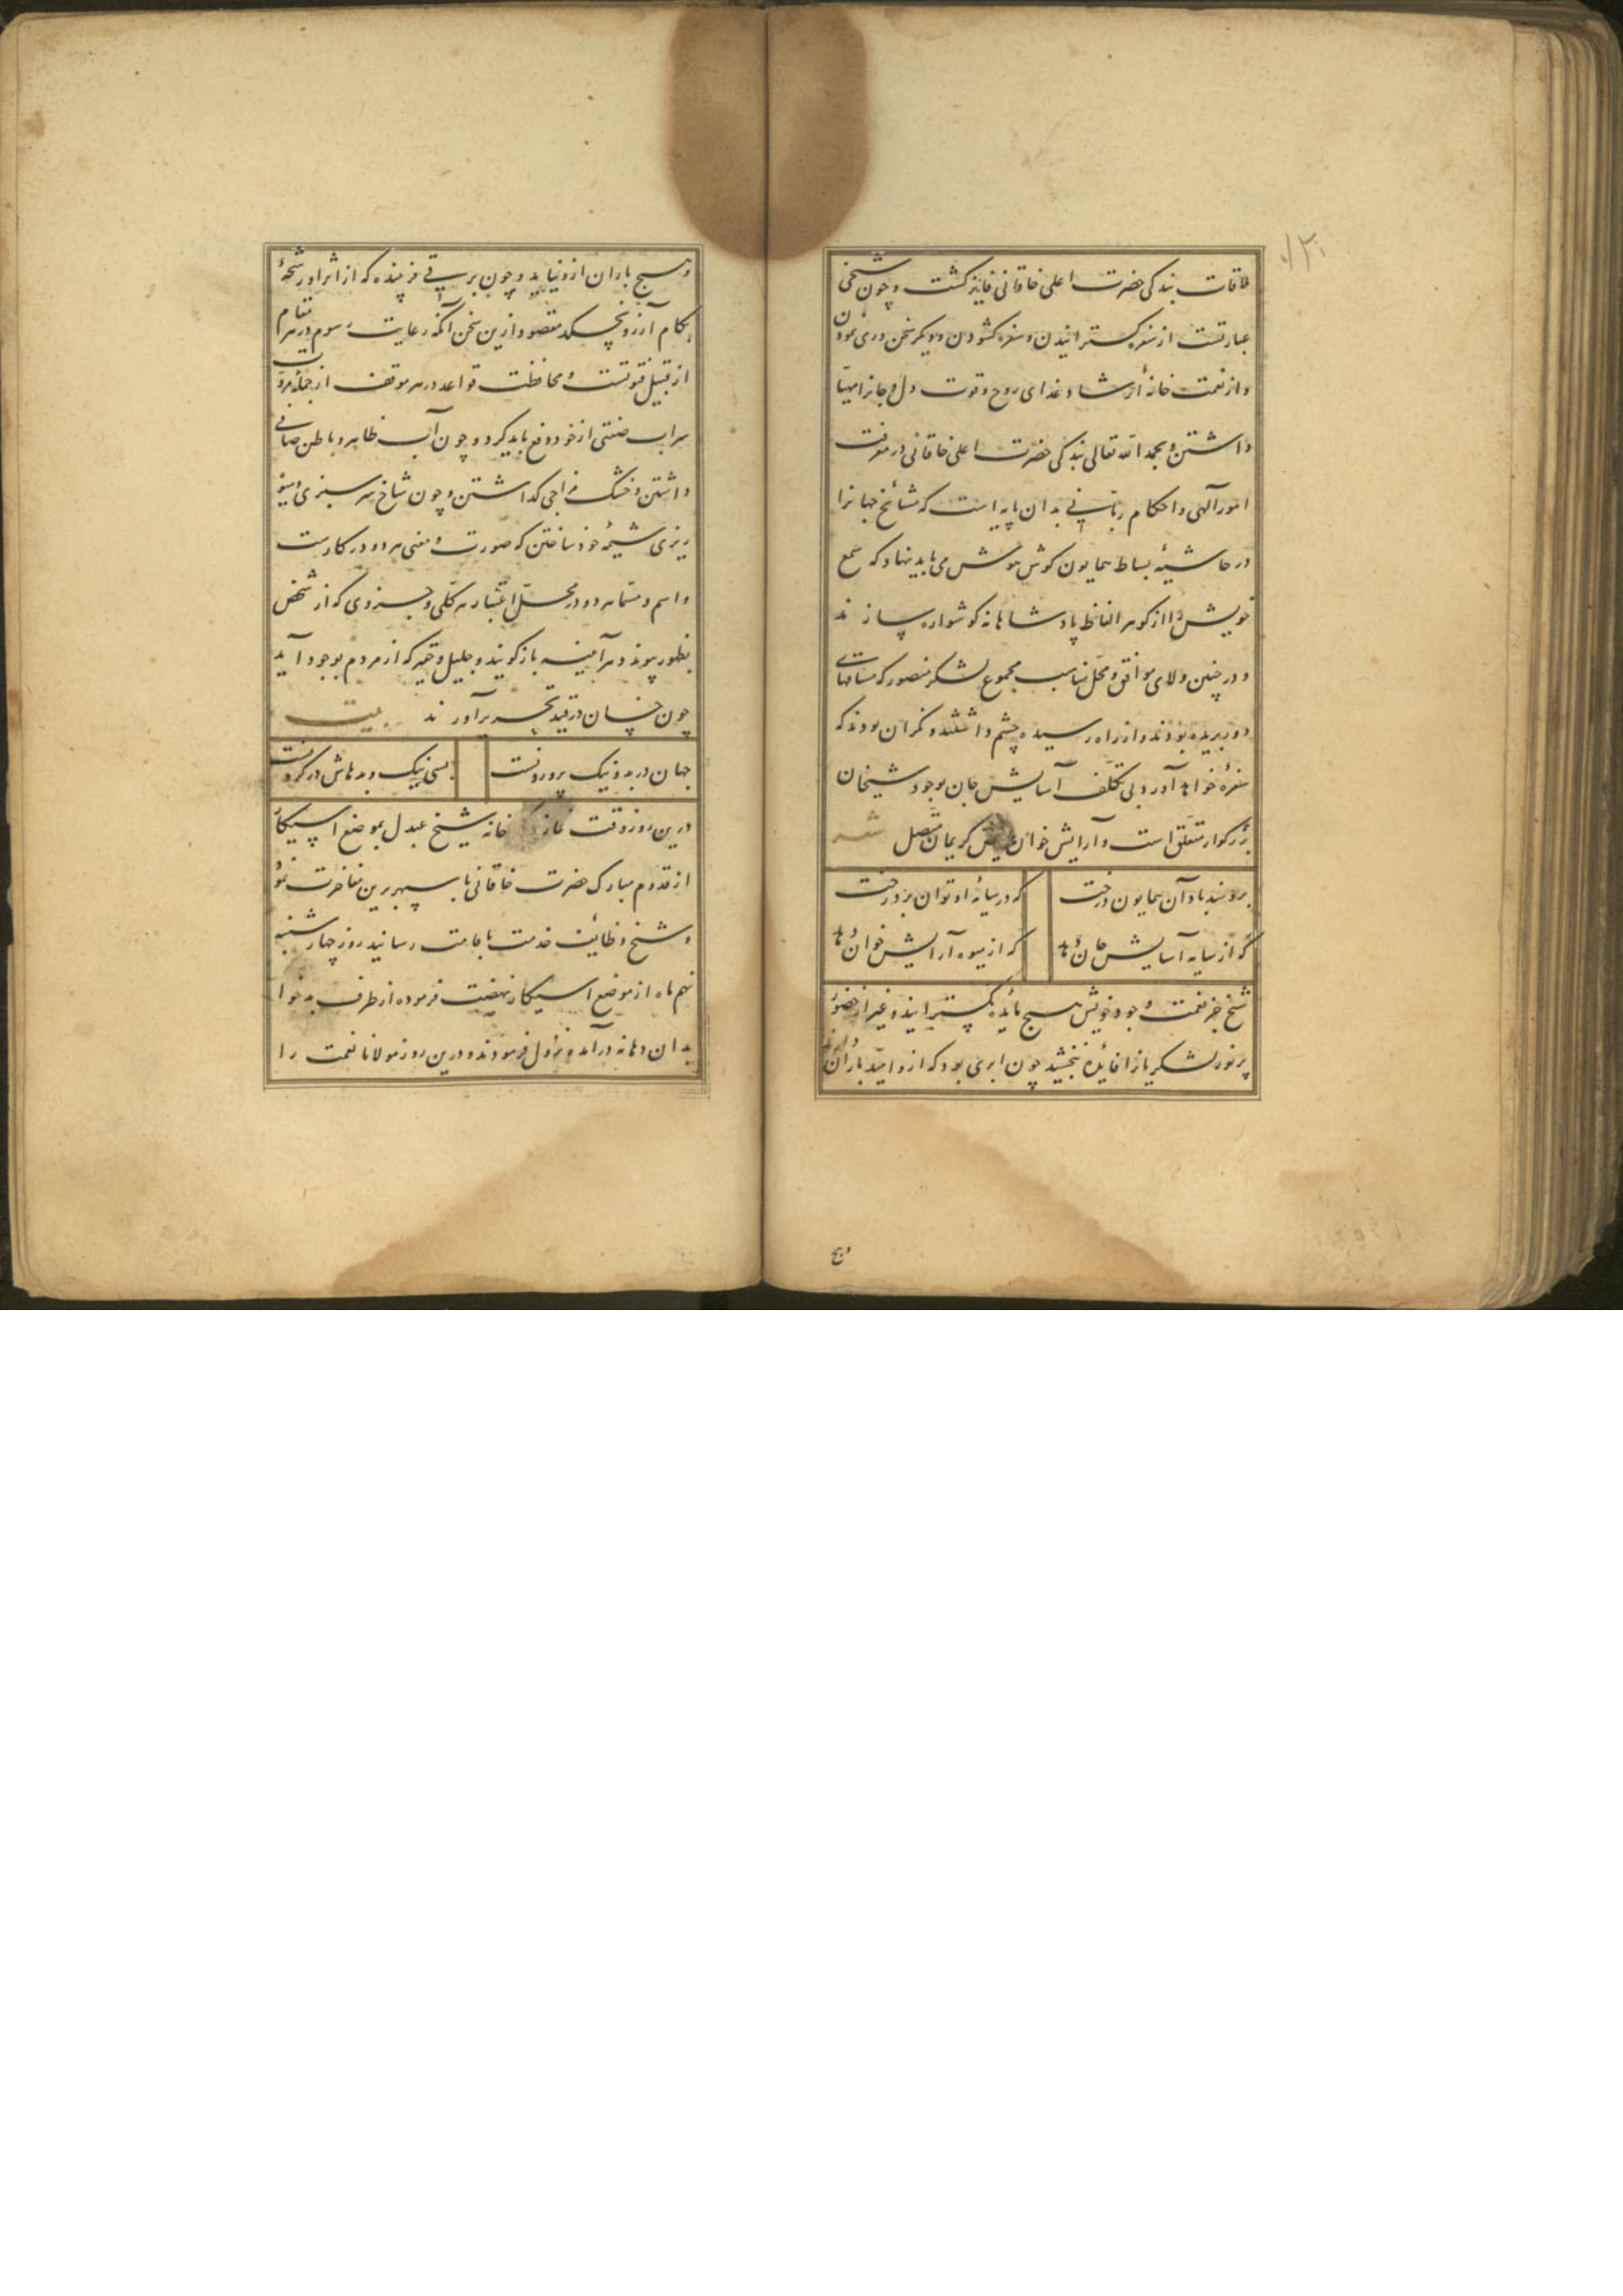 ملاقات بندگی حضرت اعلی خاقانی فایز کشت و چون شیخی
عبارتست از سفره کسترانیدن و سفره کشودن و دیکر سخن دری نمودن
و از نعمت خانهٔ ارشاد غذای روح و قوت دل و جانرا مهیا
داشتن و بحمد الله تعالی بندکی حضرت اعلی خاقانی در معرفت
امور آلهی و احکام ربانی بدان پایه است که مشائخ جهانرا
در حاشیهٔ بساط همایون کوش هوش می باید نهاد که سمع
خویش را از کوهر الفاظ پادشاهانه کوشواره سازند
و در چنین ولای موافق و محل مناسب مجموع لشکر منصور که مسافتهای
دور بریده بودند و از راه رسیده چشم داشتند و نکران بودند که
سفره خواهد آورد بی تکلف آسایش جان بوجود شیخان
بزرکوار متعلق است و آرایش خوان کریمان متصل شعر
برومند باد آن همایون درخت که در سایهٔ او توان برد رخت
که از سایه آسایش جان‌ها که از میوه آرایش خوان‌ها
شیخ جز نعمت وجود خویش هیچ مائده نکسترانید و غیر از حضور
پر نور لشکریانرا فائده نبخشید چون ابری بود که ازو امید باران دارند
وهیچ
۱۳۰
و هیچ باران ازو نیاید و چون برقی فریبنده که از اثر او رشحهٔ
بکام آرزو نچسکد مقصود ازین سخن آنکه رعایت رسوم در هر مقام
از قبیل فتوتست و محافظت قواعد در هر موقف از جملهٔ مروت
سراب صفتی از خود دفع باید کرد و چون آب ظاهر و باطن صافی
داشتن و خشک مزاجی کذاشتن و چون شاخ سر سبزی و میوه
ریزی شیمهٔ خود ساختن که صورت و معنی هر دو در کارست
و اسم و مسما هر دو در محل اعتبار هر کلی و جزوی که از شخص
بظهور پیوندد هر آینه باز کویند و جلیل و حقیر که از مردم بوجود آید
چون چنان در قید تحریر آورند بیت
جهان در بد و نیک پروردنست بسی نیک و بد هاش در کردنست
درین روز وقت نماز خانه شیخ عبدل بموضع اسپیکار
از قدوم مبارک حضرت خاقانی با سپهر برین مفاخرت نمود
و شیخ وظائف خدمت باقامت رسانید روز چهارشنبه
نهم ماه از موضع اسپیکار نهضت فرموده از طرف بدخوا
بدان دهانه درآمده نزول فرمودند و درین روز مولانا نعمت را